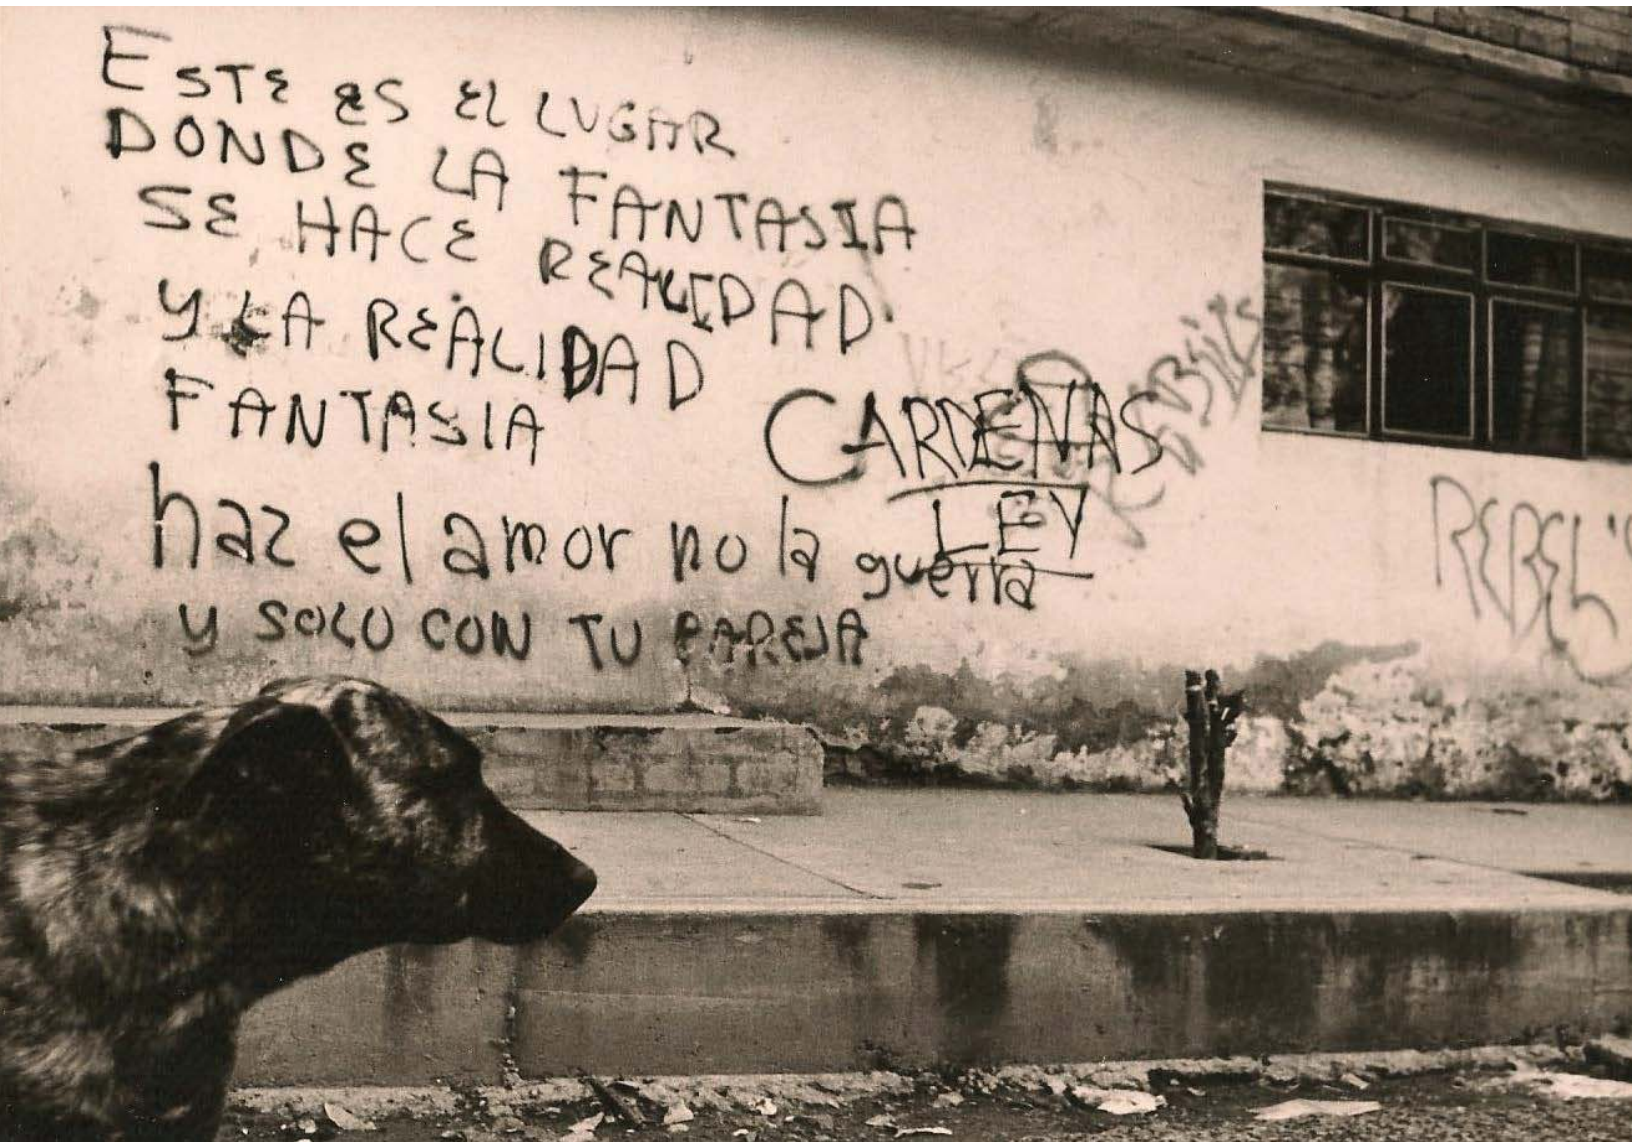 ESTE ES EL LUGAR
DONDE LA FANTASIA
SE HACE REALIDAD
Y LA REALIDAD
FANTASIA
CARDENAS
LEY
haz el amor no la guerra
Y SOLO CON TU PAREJA
REBEL'S